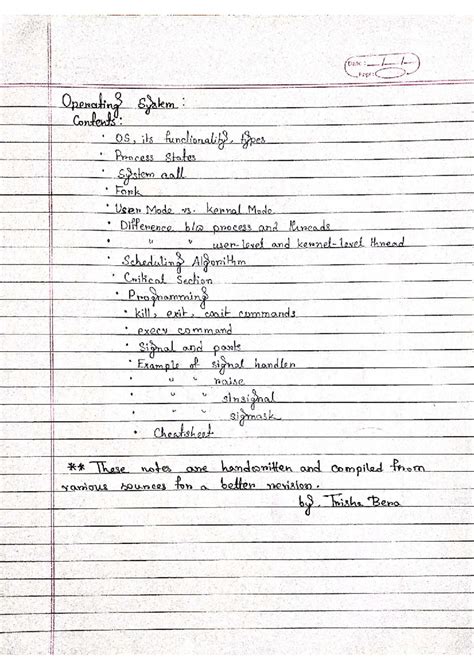 Date: __/__/__
Page:
Operating System:
Contents:
• OS, its functionality, types
• Process States
• System call
• Fork
• User Mode vs. Kernal Mode
• Difference b/w process and threads
• " " user-level and kernel-level thread
• Scheduling Algorithm
• Critical Section
• Programming
• kill, exit, wait commands
• execv command
• Signal and
• Example of signal handler
• " " raise
• " "
• " " sigmask
• Cheatsheet
** These notes are handwritten and compiled from
various sources for a better revision.
by, Trisha Bera